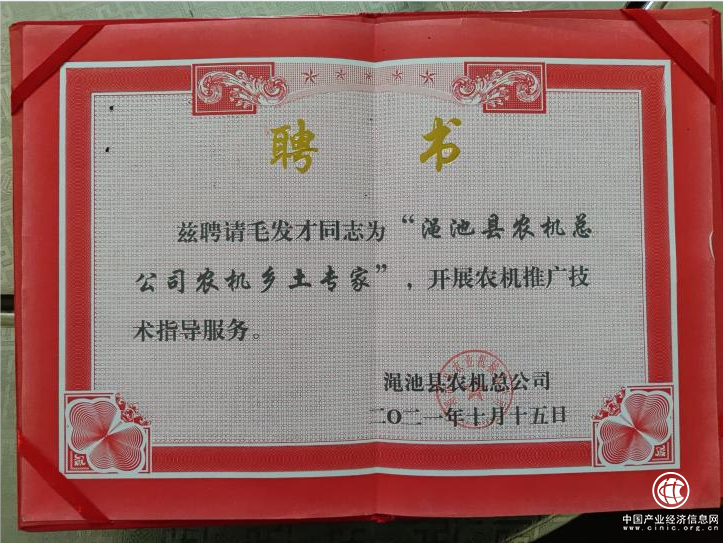 聘 书
兹聘请毛发才同志为“渑池县农机总
公司农机乡土专家”，开展农机推广技
术指导服务。
渑池县农机总公司
二〇二一年十月十五日
中国产业经济信息网
www.cinic.org.cn